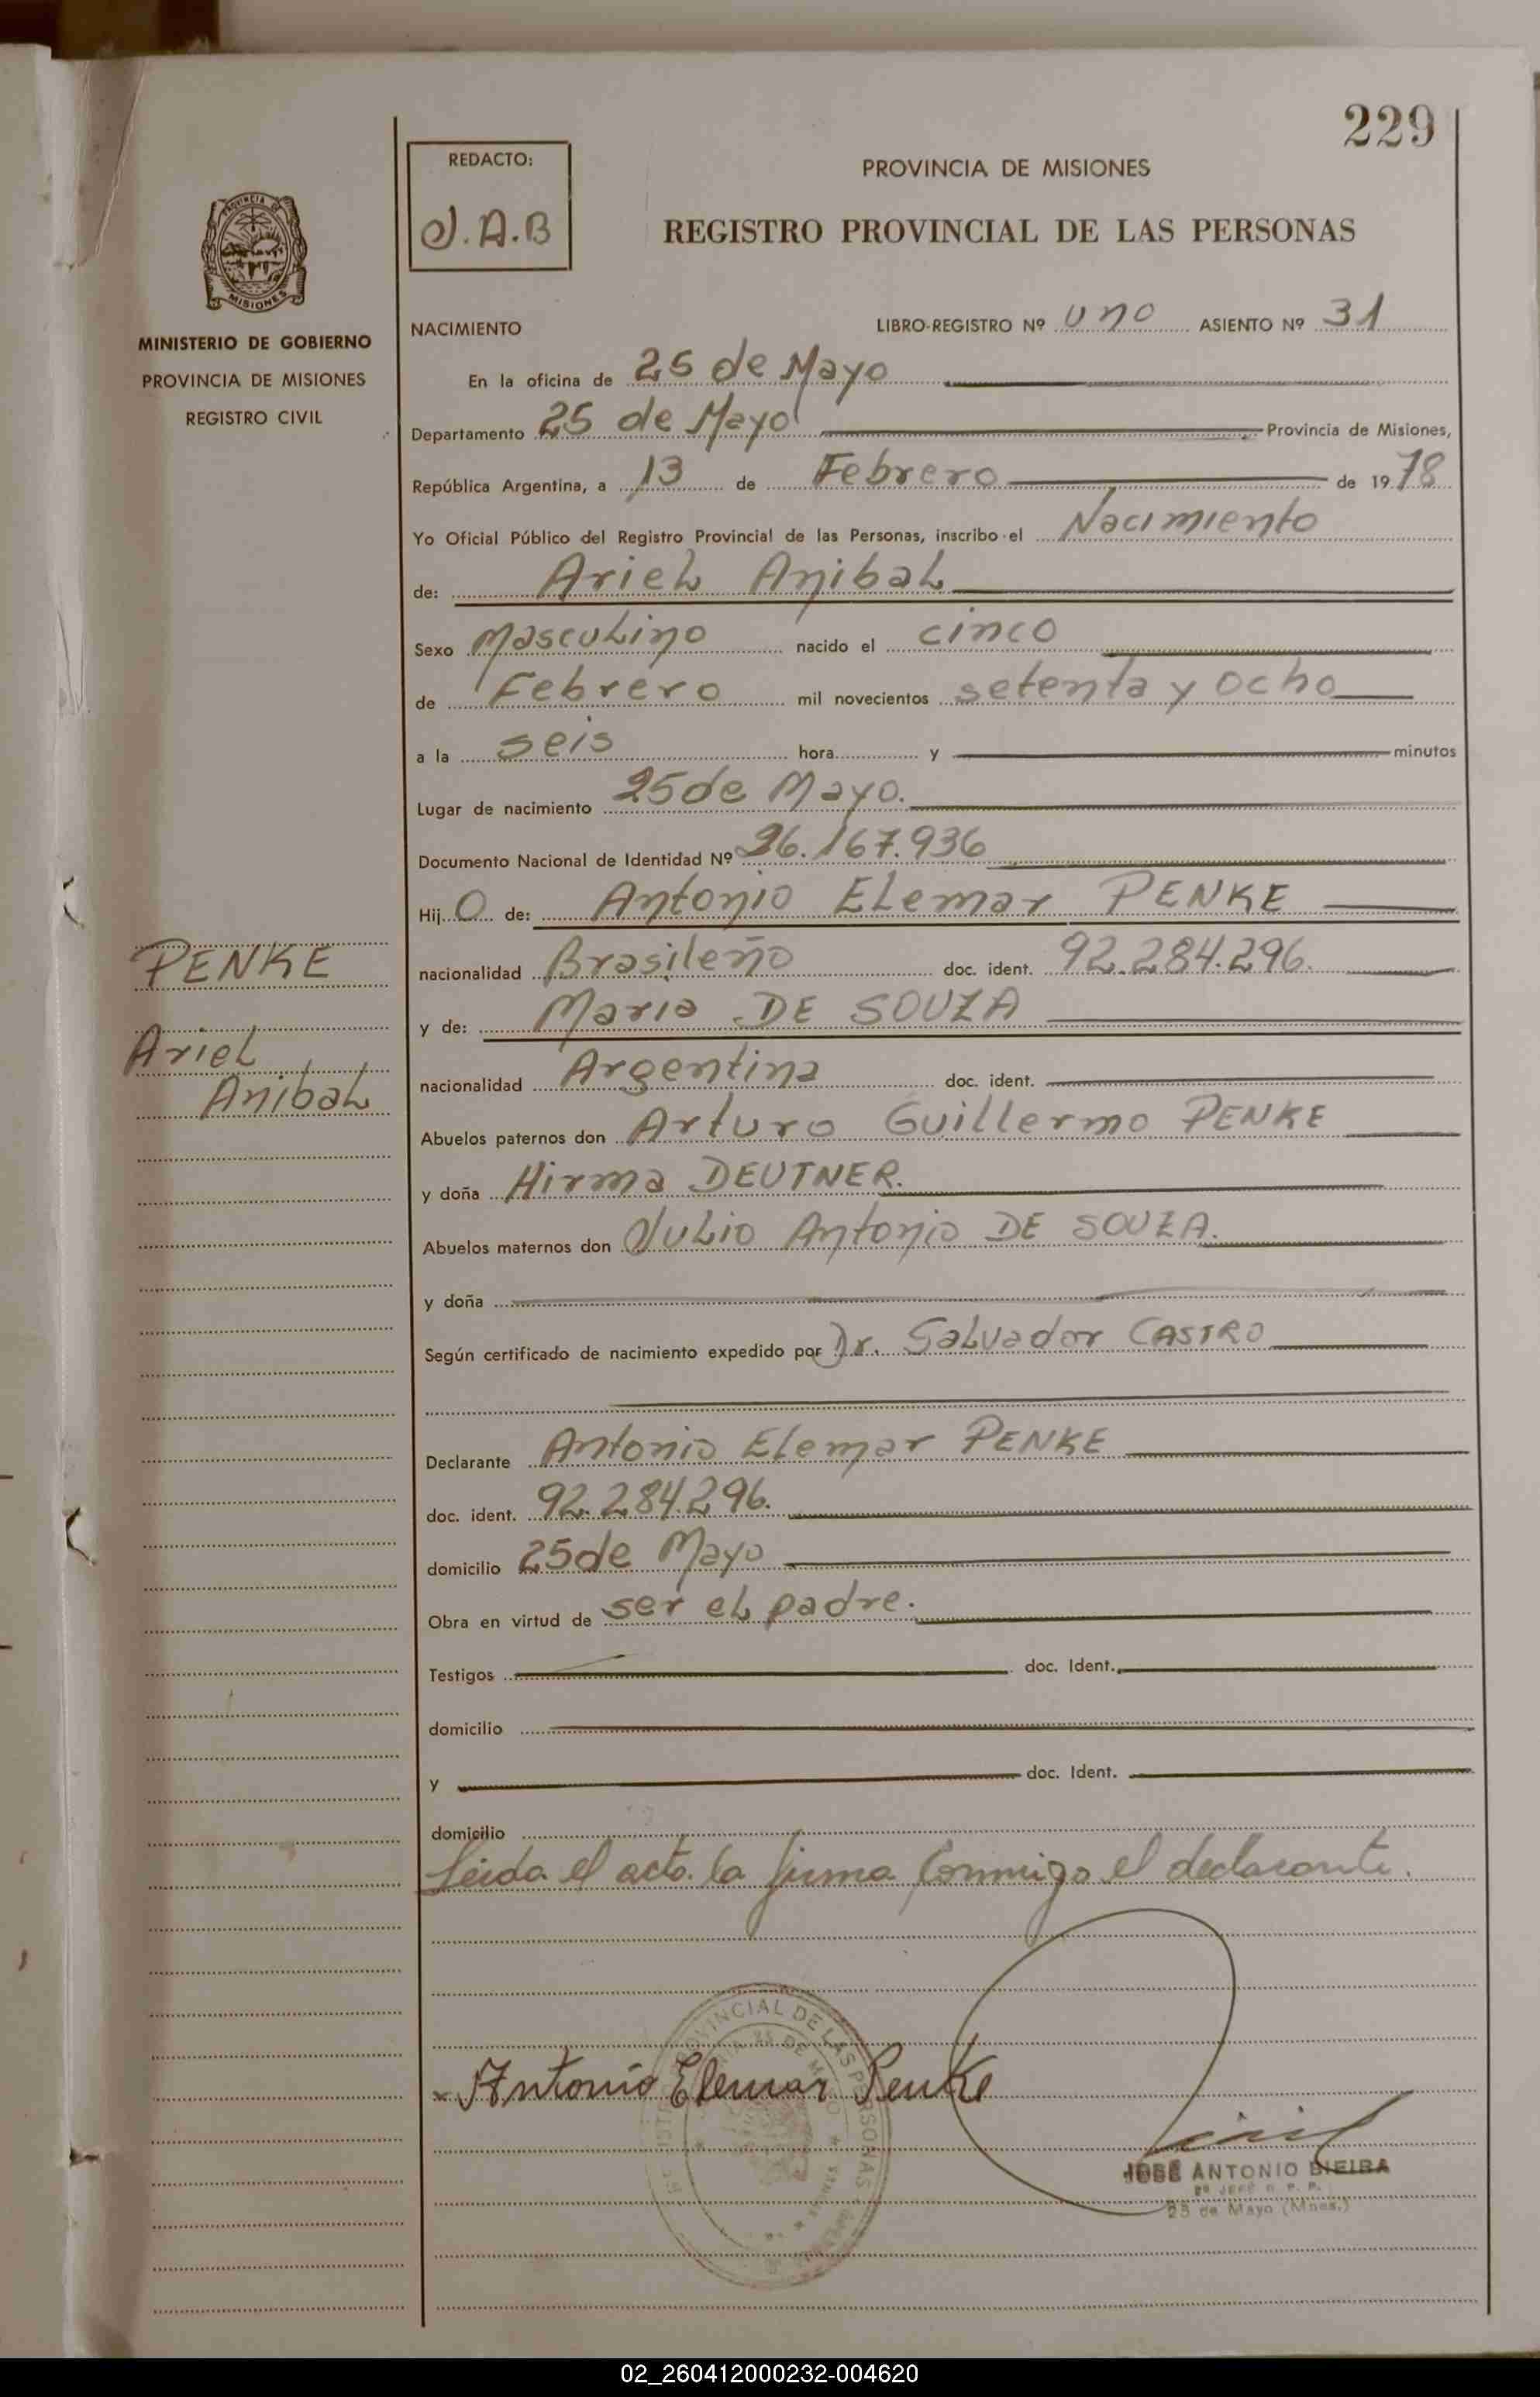 229
REDACTO:
J.A.B
PROVINCIA DE MISIONES
REGISTRO PROVINCIAL DE LAS PERSONAS
PROVINCIA DE
MISIONES
MINISTERIO DE GOBIERNO
PROVINCIA DE MISIONES
REGISTRO CIVIL
NACIMIENTO LIBRO-REGISTRO Nº uno ASIENTO Nº 31
En la oficina de 25 de Mayo
Departamento 25 de Mayo Provincia de Misiones,
República Argentina, a 13 de Febrero de 1978
Yo Oficial Público del Registro Provincial de las Personas, inscribo el Nacimiento
de: Ariel Anibal
Sexo Masculino nacido el cinco
de Febrero mil novecientos setenta y ocho
a la seis hora y minutos
Lugar de nacimiento 25 de Mayo.
Documento Nacional de Identidad Nº 26.167.936
Hijo de: Antonio Elemar PENKE
nacionalidad Brasileño doc. ident. 92.284.296.
y de: Maria DE SOUZA
nacionalidad Argentina doc. ident.
Abuelos paternos don Arturo Guillermo PENKE
y doña Hirma DEUTNER.
Abuelos maternos don Julio Antonio DE SOUZA.
y doña
Según certificado de nacimiento expedido por Dr. Salvador CASTRO
Declarante Antonio Elemar PENKE
doc. ident. 92.284.296.
domicilio 25 de Mayo
Obra en virtud de ser el padre.
Testigos doc. Ident.
domicilio
y doc. Ident.
domicilio
Leida el acta la firma conmigo el declarante.
PENKE
Ariel
Anibal
PROVINCIAL DE LAS PERSONAS
25 DE MAYO
x Antonio Elemar Penke
JOSÉ ANTONIO BIEIRA
2º JEFE R. P. P.
25 de Mayo (Mnes.)
02_260412000232-004620